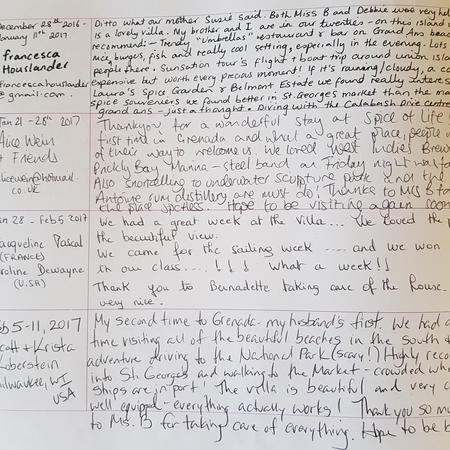 December 28th 2016 -
January 11th 2017
Francesca
Houslander
francescahouslander
@gmail.com
Ditto what our mother Susie said. Both Miss B and Debbie were very hel
is a lovely villa. My brother and I are in our twenties - on this island w
recommend:- Trendy "Umbrellas" restaurant & bar on Grand Ans beach
nice, burgers, fish and really cool setting, especially in the evening. Lots
people there. Sunsation tour's flight + boat trip around union island
expensive but worth every precious moment! If it's raining/cloudy, a co
Laura's Spice Garden & Belmont Estate we found really interes
spice souvenirs we found better in St. Georges market than the ma
grand ans - just a thought. Diving with the Calabash Dive centre
Jan 21 - 28th 2017
Alice Wein
+ Friends
alicewein@hotmail.
co.uk
Thankyou for a wonderful stay at Spice of Life
first time in Grenada and what a great place, people
of their way to welcome us. We loved West Indies Brew
Prickly Bay Marina - steel band on Friday night was fa
Also snorkelling to underwater sculpture park and the
Antoine rum distillers are must do! Thanks to Mrs B for
the place spotless. Hope to be visiting again soon
Jan 28 - Feb 5 2017
Jacqueline Pascal
(FRANCE)
Caroline Dewayne
(USA)
We had a great week at the villa... We loved the p
the beautiful view.
We came for the sailing week .... and we won
in our class.... ! ! ! What a week!!
Thank you to Bernadette taking care of the house.
very nice.
Feb 5-11, 2017
Scott + Krista
Koberstein
Milwaukee, WI
USA
My second time to Grenada - my husband's first. We had a
time visiting all of the beautiful beaches in the south &
adventure driving to the National Park (scary!) Highly reco
into St. Georges and walking to the Market - crowded whe
ships are in port! The villa is beautiful and very c
well equipped - everything actually works! Thank you so mu
to Ms. B for taking care of everything. Hope to be b